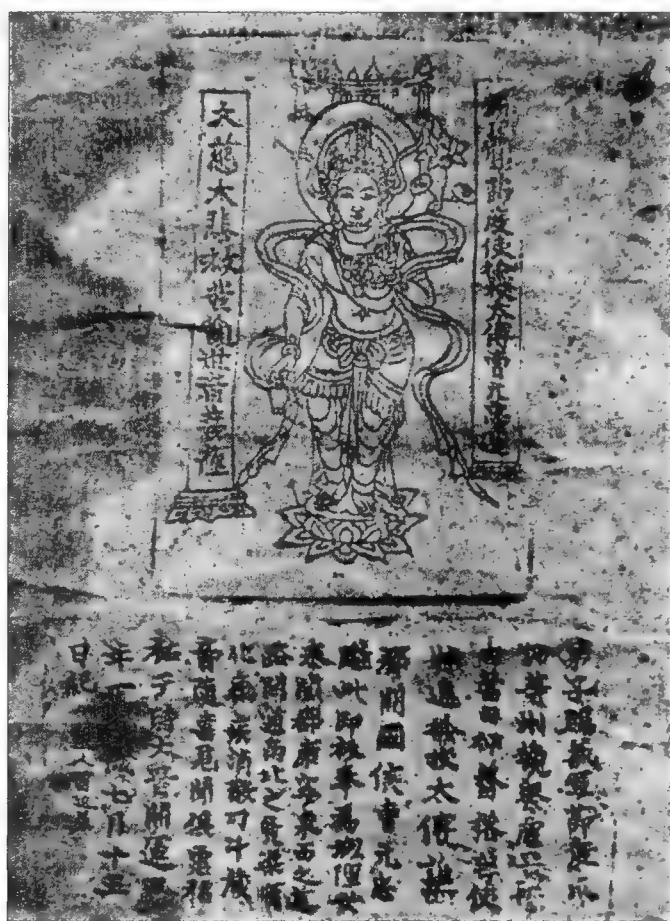 歸義軍節度使檢校太傅曹元忠造
大慈大悲救苦觀世音菩薩
弟子歸義軍節度瓜
沙等州觀察處置管
內營田押蕃落等使
特進檢校太傅譙
郡開國侯曹元忠
雕此印板奉為城隍安
泰闔郡康寧東西之道
路開通南北之凶渠順
化癘疾消散刁斗藏
音隨喜見聞俱霑福
祐于時大晉開運四
年七月十五
日紀 匠人